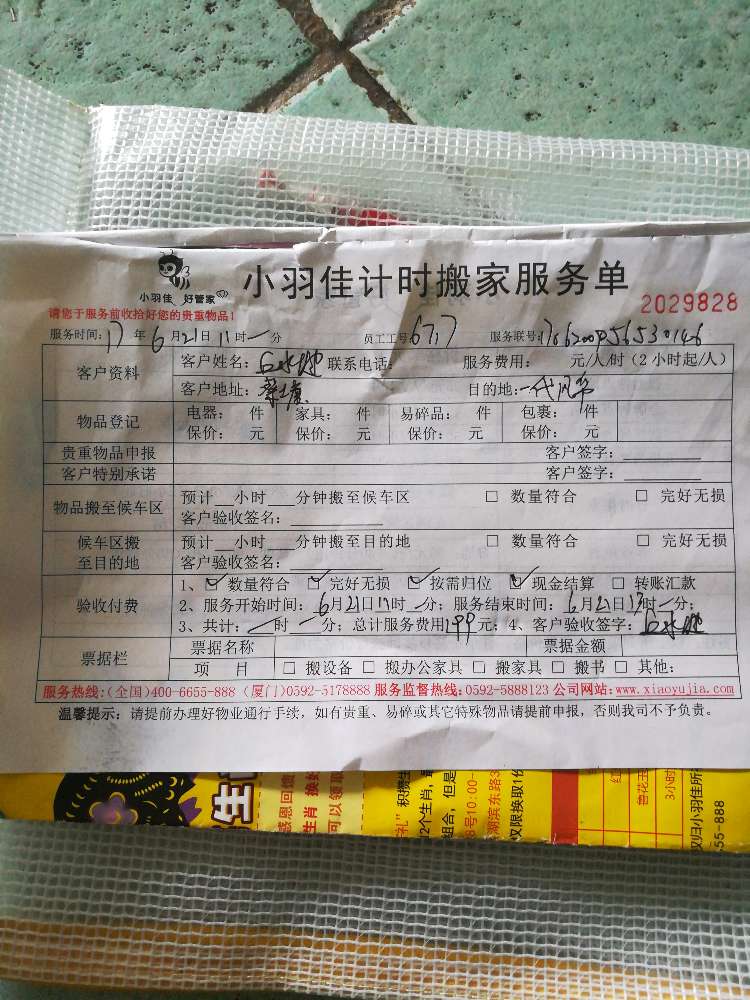 小羽佳 好管家
小羽佳计时搬家服务单
2029828
请您于服务前收拾好您的贵重物品!
服务时间: 17 年 6 月 21 日 11 时 一 分 员工工号: 6717 服务联号:
客户资料 客户姓名: 联系电话: 服务费用: 元/人/时(2小时起/人)
客户地址: 目的地: 一代风华
物品登记 电器: 件 家具: 件 易碎品: 件 包裹: 件
保价: 元 保价: 元 保价: 元 保价: 元
贵重物品申报 客户签字:
客户特别承诺 客户签字:
物品搬至候车区 预计__小时___分钟搬至候车区 □ 数量符合 □ 完好无损
客户验收签名:
候车区搬至目的地 预计__小时___分钟搬至目的地 □ 数量符合 □ 完好无损
客户验收签名:
验收付费 1、☑ 数量符合 ☑ 完好无损 ☑ 按需归位 ☑ 现金结算 □ 转账汇款
2、服务开始时间: 6月21日11时一分; 服务结束时间: 6月21日13时一分;
3、共计: 一时一分; 总计服务费用199元; 4、客户验收签字:
票据栏 票据名称 票据金额
项 目 □ 搬设备 □ 搬办公家具 □ 搬家具 □ 搬书 □ 其他:
服务热线:(全国)400-6655-888 (厦门)0592-5178888 服务监督热线:0592-5888123 公司网站:www.xiaoyujia.com
温馨提示: 请提前办理好物业通行手续,如有贵重、易碎或其它特殊物品请提前申报,否则我司不予负责。
感恩回馈
生肖 换
可以领取
积攒
2个生肖,
组合,但是
8号10:00-
湖滨东路3
仅限换取1份
3小时
权归小羽佳所
55-888